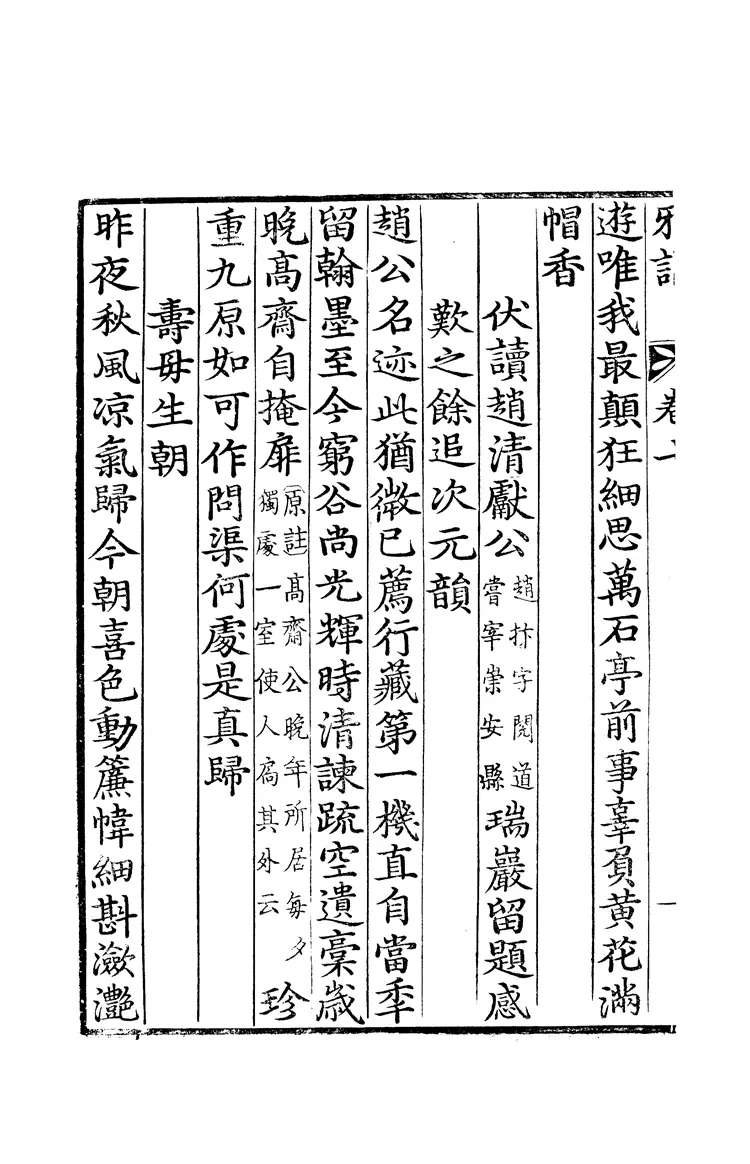 卷一
遊唯我最顛狂細思萬石亭前事辜負黄花滿
帽香
伏讀趙清獻公趙抃字閱道嘗宰崇安縣瑞巖留題感
歎之餘追次元韻
趙公名迹此猶微已薦行藏第一機直自當秊
留翰墨至今窮谷尚光輝時清諫疏空遺藁歲
晚高齋自掩扉原註高齋公晚年所居每夕獨處一室使人爲其外云珍
重九原如可作問渠何處是真歸
壽母生朝
昨夜秋風凉氣歸今朝喜色動簾幃細斟瀲灔